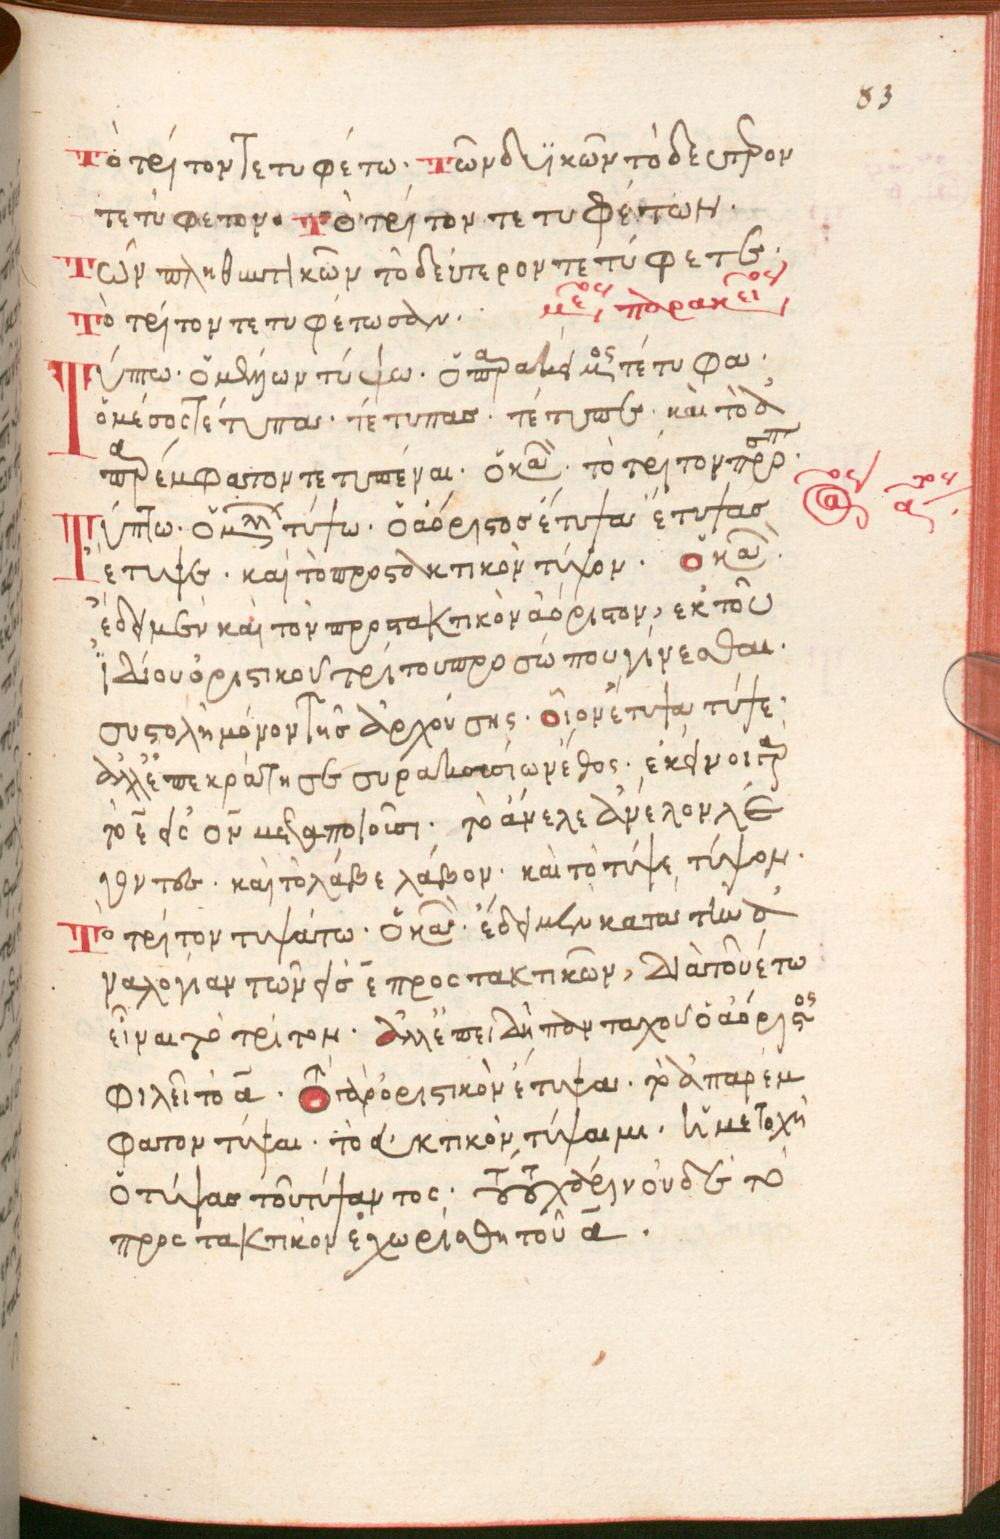 83
Τὸ τρίτον τετυφέτω. Τῶν δυϊκῶν τὸ δεύτερον
τετύφετον. Τὸ τρίτον τετυφέτων.
Τῶν πληθυντικῶν τὸ δεύτερον τετύφετε.
Τὸ τρίτον τετυφέτωσαν. μέσος παρακείμενος
Τύπτω. ὁ μέλλων τύψω. ὁ παρακείμενος τέτυφα.
ὁ μέσος τέτυπα. τέτυπας. τέτυπε. καὶ τὸ ἀ
παρέμφατον τετυπέναι. ὁ κανών. τὸ τρίτον
Τύπτω. ὁ μέλλων τύψω. ὁ ἀόριστος ἔτυψα ἔτυψας
ἔτυψε. καὶ τὸ προστακτικὸν τύψον. ὁ κανών.
ἔδει μὲν καὶ τὸν προστακτικὸν ἀόριστον, ἐκ τοῦ
ἰδίου ὁριστικοῦ τρίτου προσώπου γίνεσθαι.
συστολῇ μόνον τῆς ἀρχούσης. οἷον ἔτυψα τύψε.
ἀλλ' ἐπεκράτησε συρακουσίων ἔθος. ἐκεῖνοι γὰρ
τὸ ε εἰς ον μεταποιοῦσι. τὸ ἄνελε ἄνελον λέ
γοντες. καὶ τὸ λάβε λάβον. καὶ τὸ τύψε τύψον.
Τὸ τρίτον τυψάτω. ὁ κανών. ἔδει μὲν κατὰ τὴν ἀ
ναλογίαν τῶν εἰς ε προστακτικῶν, διὰ τοῦ έτω
εἶναι τὸ τρίτον. ἀλλ' ἐπειδὴ πανταχοῦ ὁ ἀόριστος
φιλεῖ τὸ α. ὁριστικὸν ἔτυψα. τὸ ἀπαρέμ
φατον τύψαι. τὸ εὐκτικὸν τύψαιμι. ἡ μετοχὴ
ὁ τύψας τοῦ τύψαντος. τούτου χάριν οὐδὲ τὸ
προστακτικὸν ἐχωρίσθη τοῦ α.